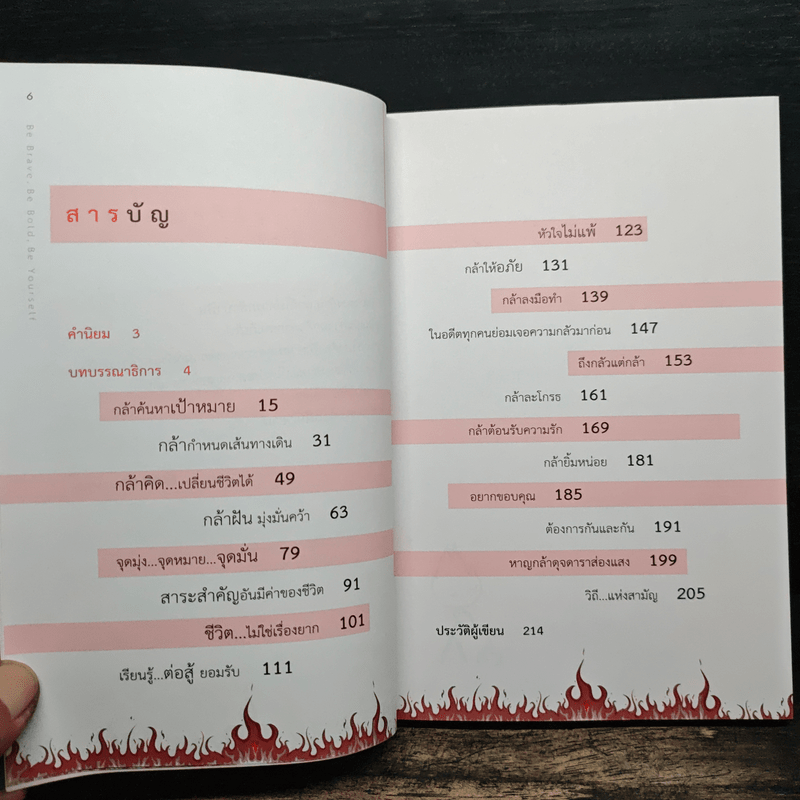 6
Be Brave, Be Bold, Be Yourself
สารบัญ
คำนิยม 3
บทบรรณาธิการ 4
กล้าค้นหาเป้าหมาย 15
กล้ากำหนดเส้นทางเดิน 31
กล้าคิด...เปลี่ยนชีวิตได้ 49
กล้าฝัน มุ่งมั่นคว้า 63
จุดมุ่ง...จุดหมาย...จุดมั่น 79
สาระสำคัญอันมีค่าของชีวิต 91
ชีวิต...ไม่ใช่เรื่องยาก 101
เรียนรู้...ต่อสู้ ยอมรับ 111
หัวใจไม่แพ้ 123
กล้าให้อภัย 131
กล้าลงมือทำ 139
ในอดีตทุกคนย่อมเจอความกลัวมาก่อน 147
ถึงกลัวแต่กล้า 153
กล้าละโกรธ 161
กล้าต้อนรับความรัก 169
กล้ายิ้มหน่อย 181
อยากขอบคุณ 185
ต้องการกันและกัน 191
หาญกล้าดุจดาราส่องแสง 199
วิถี...แห่งสามัญ 205
ประวัติผู้เขียน 214